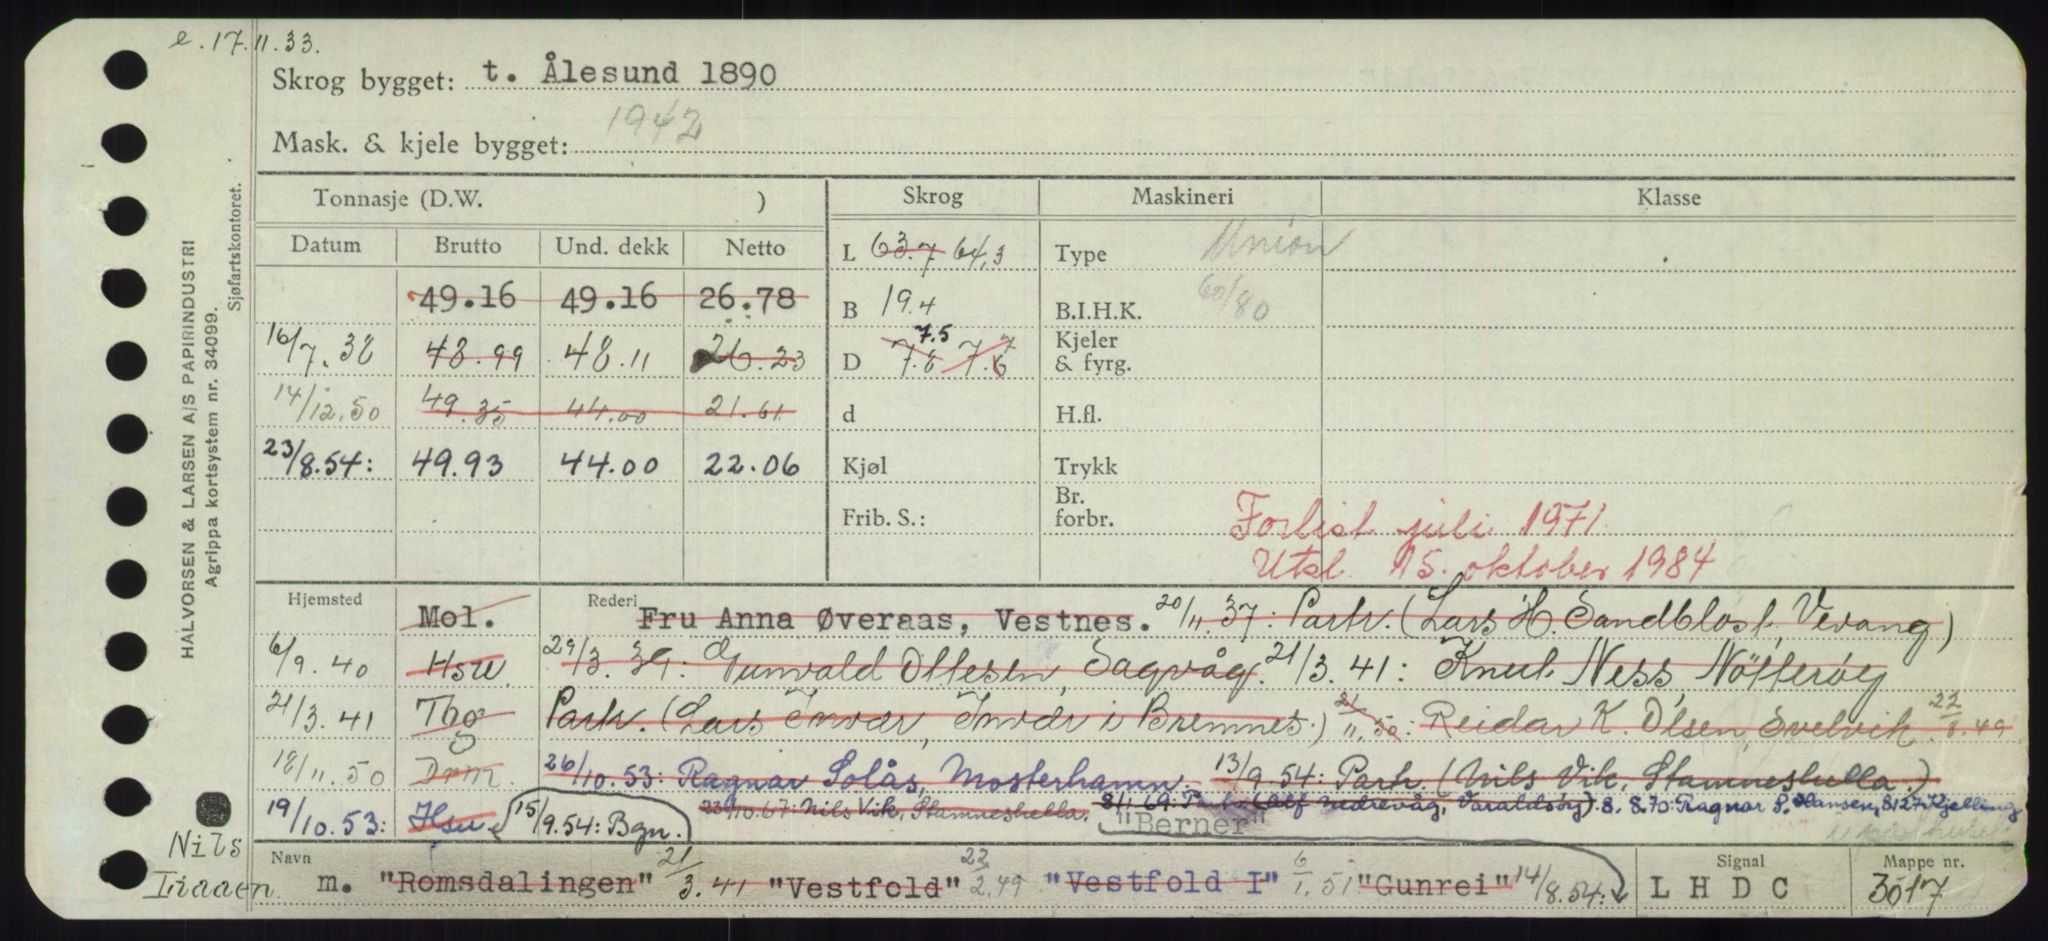 e. 17.11.33.
Skrog bygget: t. Ålesund 1890
Mask. & kjele bygget: 1942
Tonnasje (D.W. ) Skrog Maskineri Klasse
Datum Brutto Und. dekk Netto L 63.7 64,3 Type Union
49.16 49.16 26.78 B 19.4 B.I.H.K. 60/80
16/7.38 48.99 48.11 26.23 D 7.8 7.5 7.6 7 Kjeler & fyrg.
14/12.50 49.35 44.00 21.61 d H.fl.
23/8.54: 49.93 44.00 22.06 Kjøl Trykk
Frib. S.: Br. forbr. Forlist juli 1971.
Utsl. 15. oktober 1984
Hjemsted Mol. Rederi Fru Anna Øveraas, Vestnes. 20/11.37: Partr. (Lars H. Sandblost, Vevang)
6/9.40 Hsu. 29/3.39: Gunvald Ottesen, Sagvåg. 21/3.41: Knut Ness, Nøtterøy
21/3.41 Tbg Partr. (Lars Innvær, Innvær i Bremnes.) 21/11.50: Reidar K. Olsen, Svelvik. 22/8.49
18/11.50 Drm. 26/10.53: Ragnar Solås, Mosterhamn. 13/9.54: Partr. (Nils Vik, Stamneshella.)
19/10.53: Hsu. 15/9.54: Bgn. 23/10.67: Nils Vik, Stamneshella. 8/1.69: Partr. (Alf Nedrevåg, Varaldsøy) 8.8.70: Ragnar S. Hansen, 8127 Kjelling
"Berner"
Navn m. "Romsdalingen" 21/3.41 "Vestfold" 22/2.49 "Vestfold I" 6/1.51 "Gunrei" 14/8.54: Signal L H D C Mappe nr. 3017
Nils
HALVORSEN & LARSEN A/S PAPIRINDUSTRI
Agrippa kortsystem nr. 34099.
Sjøfartskontoret.